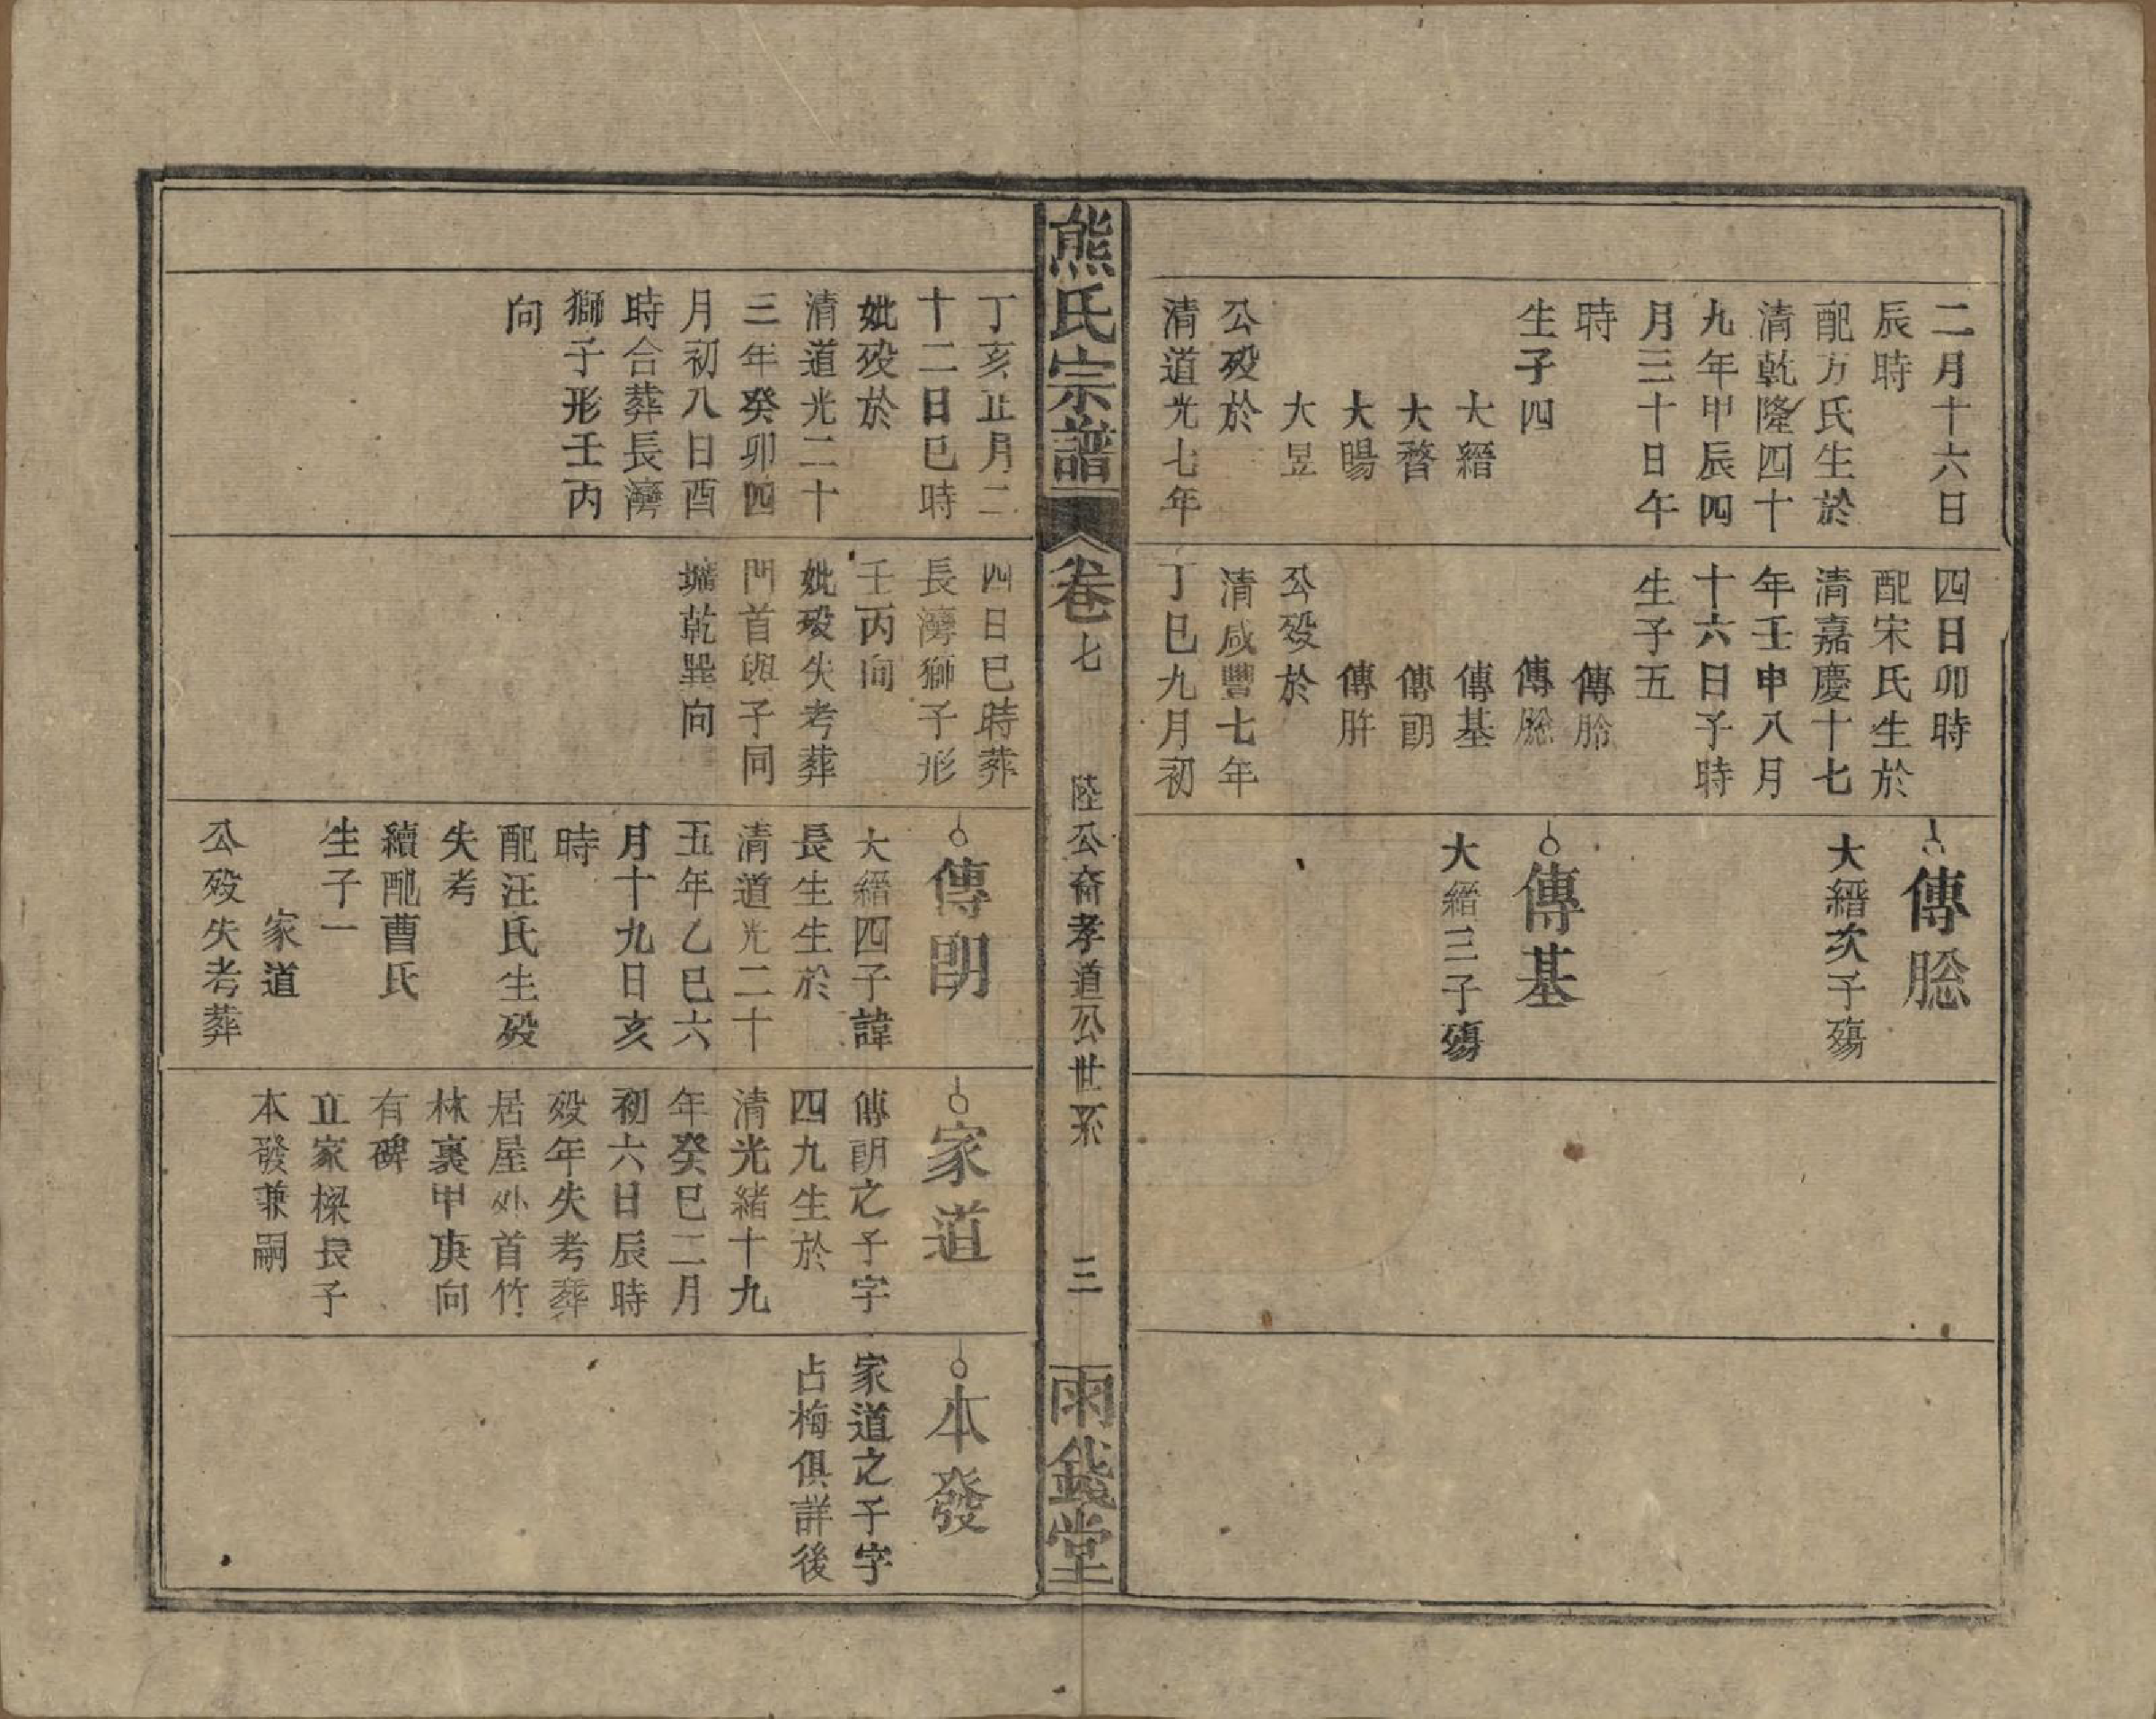 二月十六日
辰時
配方氏生於
清乾隆四十
九年甲辰四
月三十日午
時
生子四
大縉
大暓
大暘
大昱
公殁於
清道光七年
四日卯時
配宋氏生於
清嘉慶十七
年壬申八月
十六日子時
生子五
傳朎
傳朡
傳基
傳朙
傳胖
公殁於
清咸豐七年
丁巳九月初
傳朡
大縉次子殤
傳基
大縉三子殤
熊氏宗譜
卷七
陸公裔孝道公世系
三
雨錢堂
丁亥正月二
十二日巳時
妣殁於
清道光二十
三年癸卯四
月初八日酉
時合葬長灣
獅子形壬丙
向
四日巳時葬
長灣獅子形
壬丙向
妣殁失考葬
門首與子同
塘乾巽向
傳朙
大縉四子諱
長生生於
清道光二十
五年乙巳六
月十九日亥
時
配汪氏生殁
失考
續配曹氏
生子一
家道
公殁失考葬
家道
傳朙之子字
四九生於
清光緒十九
年癸巳二月
初六日辰時
殁年失考葬
居屋外首竹
林裏甲庚向
有碑
立家樑長子
本發兼嗣
本發
家道之子字
占梅俱詳後